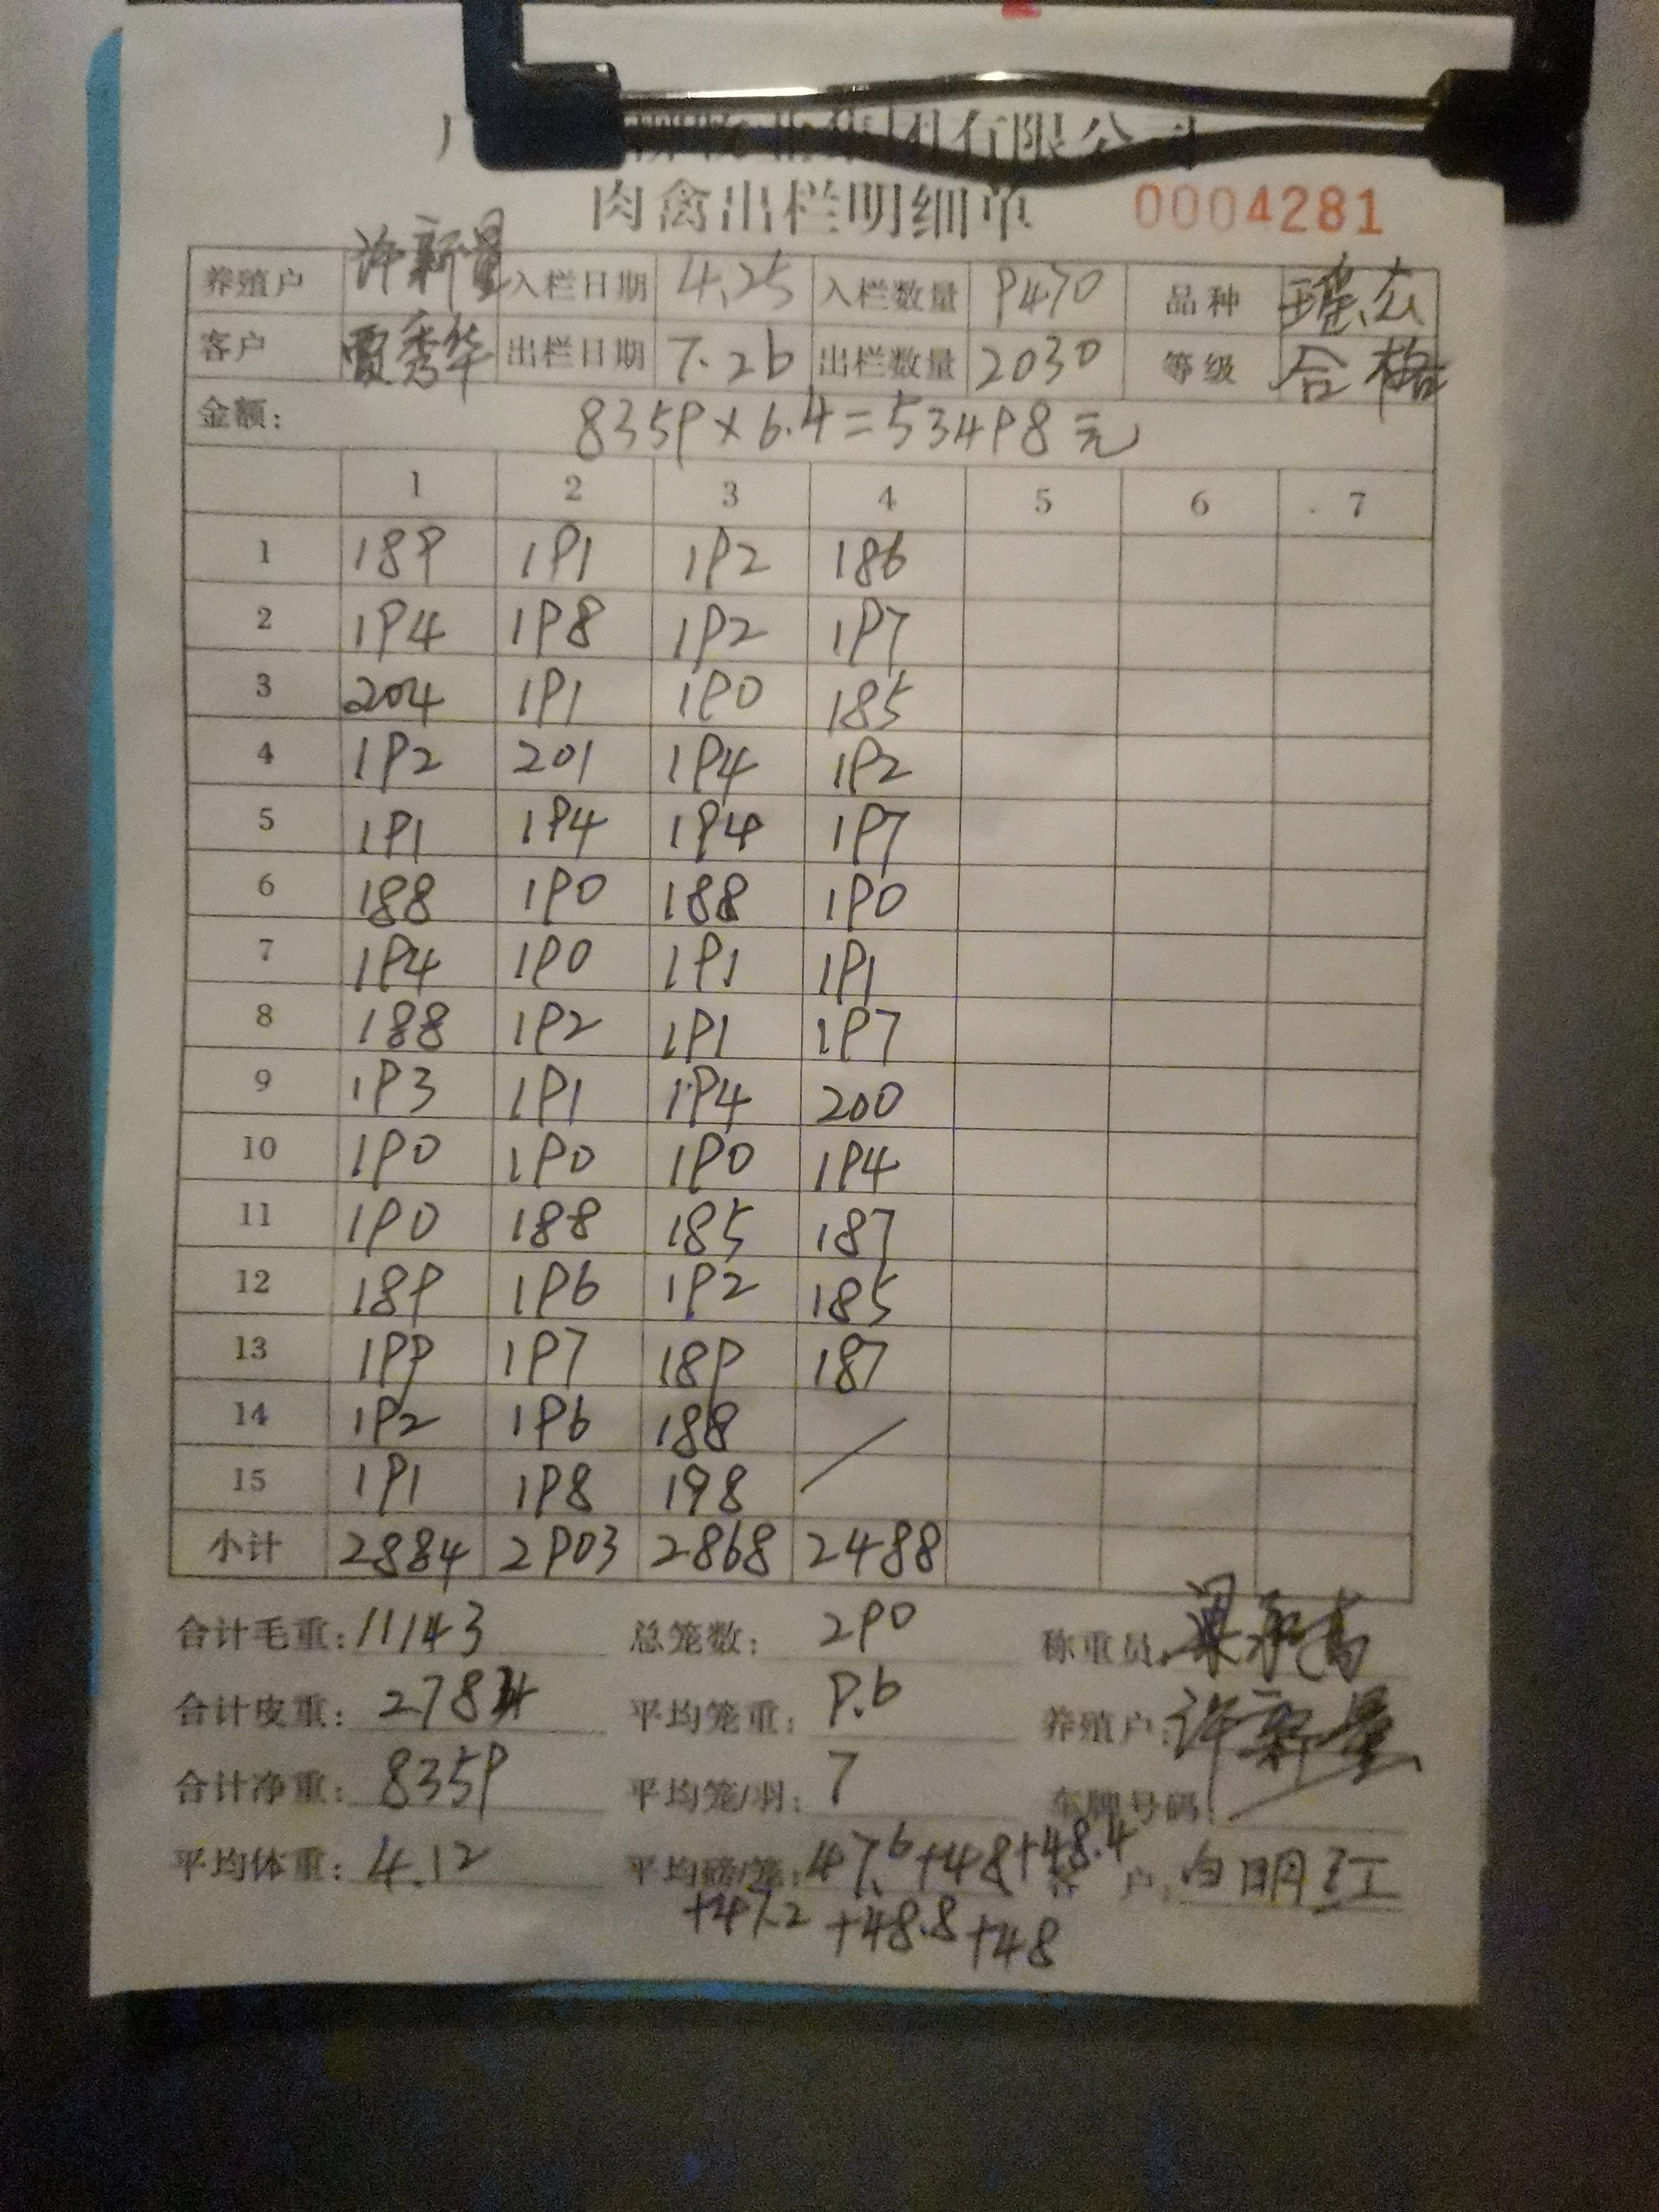 集团有限公司
肉禽出栏明细单 0004281
养殖户 许新量 入栏日期 4.25 入栏数量 9470 品种
客户 贾秀华 出栏日期 7.26 出栏数量 2030 等级 合格
金额: 8359×6.4=53498元
1 2 3 4 5 6 7
1 189 191 192 186
2 194 198 192 197
3 204 191 190 185
4 192 201 194 192
5 191 194 194 197
6 188 190 188 190
7 194 190 191 191
8 188 192 191 197
9 193 191 194 200
10 190 190 190 194
11 190 188 185 187
12 189 196 192 185
13 199 197 189 187
14 192 196 188 /
15 191 198 198
小计 2884 2903 2868 2488
合计毛重: 11143 总笼数: 290 称重员:
合计皮重: 2784 平均笼重: 9.6 养殖户: 许新量
合计净重: 8359 平均笼/羽: 7 车牌号码:
平均体重: 4.12 平均磅/笼: 47.6+48+48.4 客户: 白明红
+47.2+48.8+48